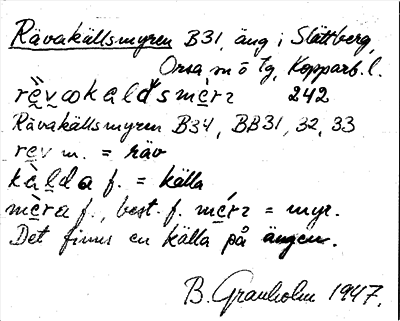 Rävakällsmyren B31, äng i Slättberg,
Orsa sn ö tg, Kopparb. l.
rè̤vωkaldsmè̤rz 242
Rävakällsmyren B34, BB31, 32, 33
re̤v m. = räv
kàlda f. = källa
mè̤ra f., best. f. mé̤rz = myr.
Det finns en källa på ängen.
B. Granholm 1947.